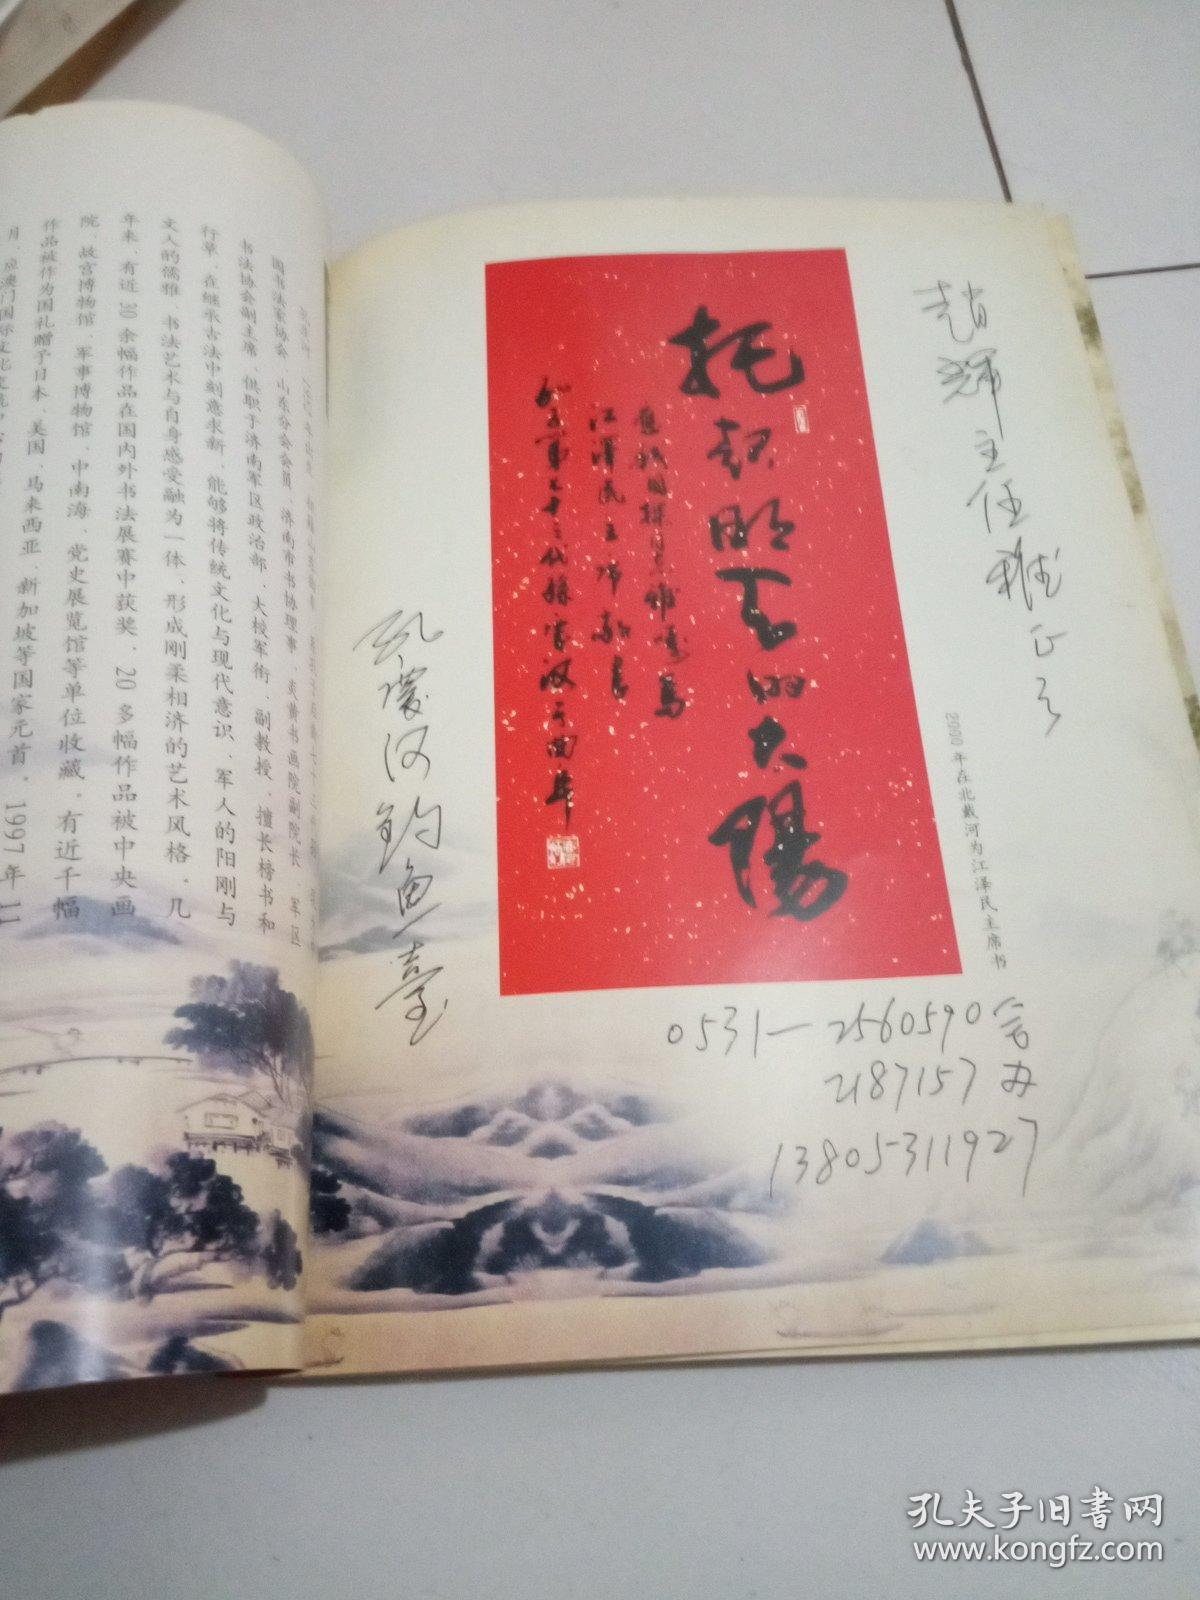 国书法家协会 山东分会会员、济南市书协理事、炎黄书画院副院长、军区
书法协会副主席、供职于济南军区政治部、大校军衔、副教授、擅长榜书和
行草、在继承古法中刻意求新、能够将传统文化与现代意识、军人的阳刚与
文人的儒雅 书法艺术与自身感受融为一体、形成刚柔相济的艺术风格。几
年来、有近30余幅作品在国内外书法展赛中获奖、20多幅作品被中央画
院、故宫博物馆、军事博物馆、中南海、党史展览馆等单位收藏。有近千幅
作品被作为国礼赠予日本、美国、马来西亚、新加坡等国家元首。1997年11
月、应澳门国际文化交流
赵辉主任雅正之
2000年在北戴河为江泽民主席书
托起明天的太阳
江泽民主席敬书
孔子第七十三代孙庆汉于曲阜
孔庆汉钓鱼台
0531—2560590会
2187157办
13805311927
孔夫子旧书网
www.kongfz.com